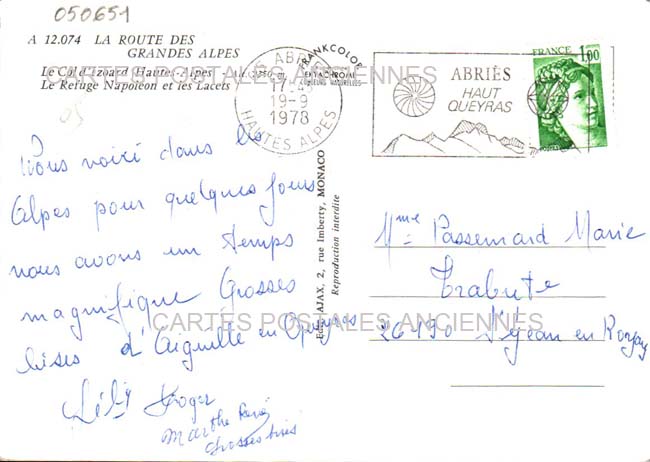 050651
A 12.074 LA ROUTE DES
GRANDES ALPES
Le Col d'Izoard (Hautes-Alpes)
Le Refuge Napoléon et les Lacets
CARTES POSTALES ANCIENNES
FRANKCOLOR
EKTACHROME
COULEURS NATURELLES
ABRIÈS
19-9
1978
HAUTES ALPES
ABRIÈS
HAUT
QUEYRAS
FRANCE
1,00
Nous voici dans les
Alpes pour quelques jours
nous avons un temps
magnifique Grosses
bises d'Aiguille en Queyras
Roger
Marthe René
Grosses bises
Edit. AJAX, 2, rue Imberty, MONACO
Reproduction interdite
Mme Passemard Marie
Trabute
26190 St Jean en Royans
CARTES POSTALES ANCIENNES